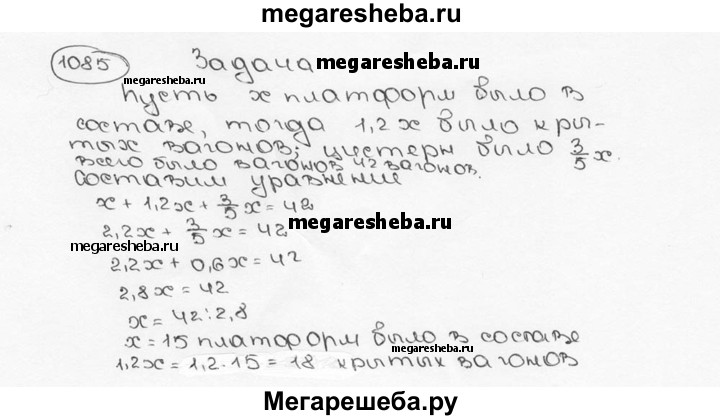 megaresheba.ru
1085 Задача
megaresheba.ru megaresheba.ru
Пусть x платформ было в
составе, тогда 1,2x было кры-
тых вагонов; цистерн было 3/5 x.
всего было вагонов 42 вагонов.
Составим уравнение
x + 1,2x + 3/5 x = 42
megaresheba.ru
2,2x + 3/5 x = 42
megaresheba.ru
2,2x + 0,6x = 42
2,8x = 42
x = 42:2,8
x = 15 платформ было в составе
megaresheba.ru
1,2x = 1,2·15 = 18 крытых вагонов
Мегарешеба.ру